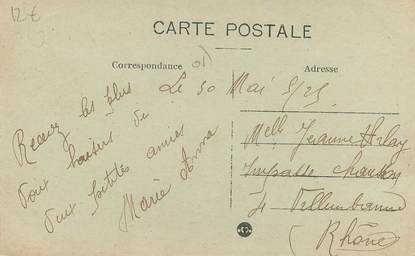 12 €
CARTE POSTALE
Correspondance
01
Adresse
Le 30 Mai
Recevez les plus
doux baisers de
deux petites amies
Marie Anna
Melle Jeanne
Impasse
4 Villeurbanne
(Rhône)